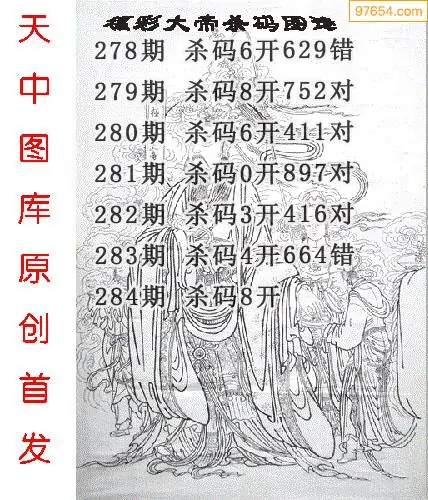 97654.com
福彩大帝杀码图迷
278期 杀码6开629错
279期 杀码8开752对
280期 杀码6开411对
281期 杀码0开897对
282期 杀码3开416对
283期 杀码4开664错
284期 杀码8开
天中图库原创首发